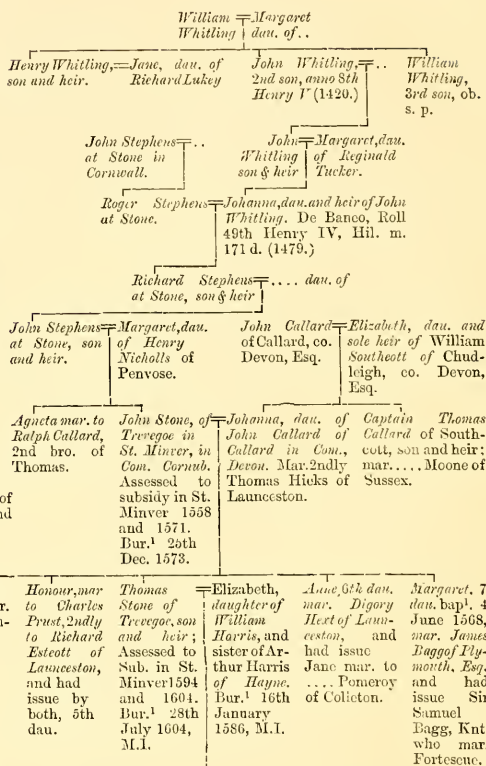 William ╤ Margaret
Whitling | dau. of..
Henry Whitling, = Jane, dau. of
son and heir. Richard Lukey
John Whitling, ╤ ..
2nd son, anno 8th
Henry V (1420.)
William
Whitling,
3rd son, ob.
s. p.
John Stephens ╤ ..
at Stone in
Cornwall.
John ╤ Margaret, dau.
Whitling of Reginald
son & heir Tucker.
Roger Stephens ╤ Johanna, dau. and heir of John
at Stone. Whitling. De Banco, Roll
49th Henry IV, Hil. m.
171 d. (1479.)
Richard Stephens ╤ .... dau. of
at Stone, son & heir
John Stephens ╤ Margaret, dau.
at Stone, son of Henry
and heir. Nicholls of
Penvose.
John Callard ╤ Elizabeth, dau. and
of Callard, co. sole heir of William
Devon, Esq. Southcott of Chud-
leigh, co. Devon,
Esq.
Agneta mar. to
Ralph Callard,
2nd bro. of
Thomas.
John Stone, of ╤ Johanna, dau. of
Trevegoe in John Callard of
St. Minver, in Callard in Com.,
Com. Cornub. Devon. Mar. 2ndly
Assessed to Thomas Hicks of
subsidy in St. Launceston.
Minver 1558
and 1571.
Bur.¹ 25th
Dec. 1573.
Captain Thomas
Callard of South-
cott, son and heir;
mar...., Moone of
Sussex.
of
nd
r.
n-
Honour, mar
to Charles
Prust, 2ndly
to Richard
Estcott of
Launceston,
and had
issue by
both, 5th
dau.
Thomas ╤ Elizabeth,
Stone of daughter of
Trevegoe, son William
and heir; Harris, and
Assessed to sister of Ar-
Sub. in St. thur Harris
Minver 1594 of Hayne.
and 1604. Bur.¹ 16th
Bur.¹ 28th January
July 1604, 1586, M.I.
M.I.
Anne, 6th dau.
mar. Digory
Hext of Laun-
ceston, and
had issue
Jane mar. to
.... Pomeroy
of Coliton.
Margaret, 7
dau. bap¹. 4
June 1568,
mar. James
Bagg of Ply-
mouth, Esq.
and had
issue Sir
Samuel
Bagg, Knt
who mar.
Fortescue.